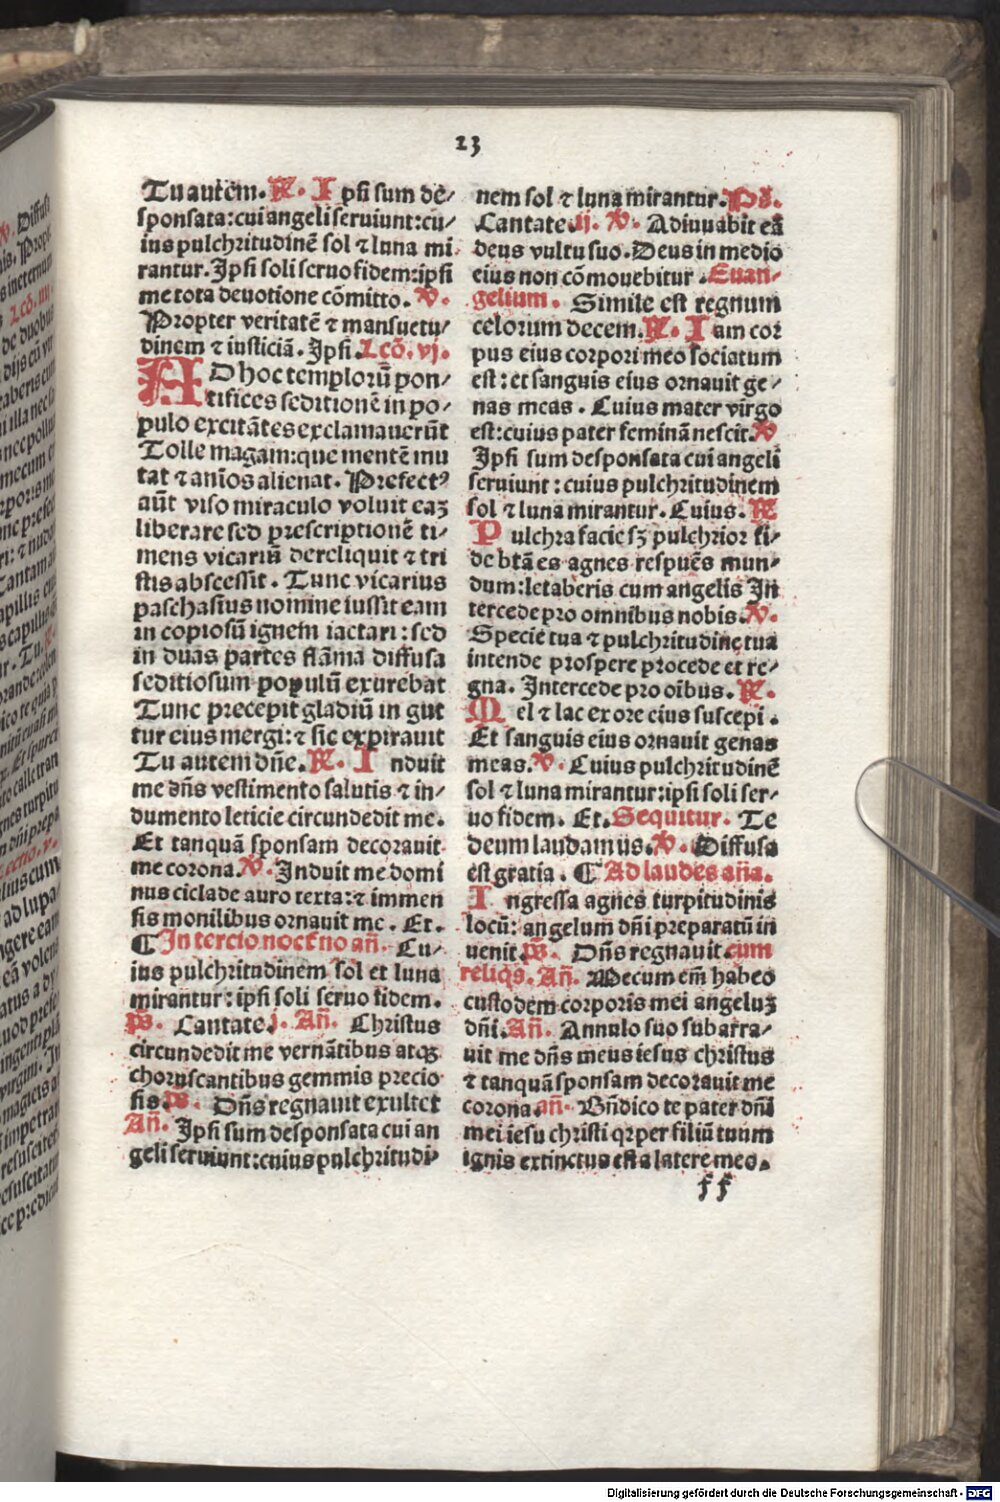 23
Tu autem. R. Ipsi sum de⸗
sponsata:cui angeli seruiunt:cu⸗
ius pulchritudinē sol ⁊ luna mi
rantur. Ipsi soli seruo fidem:ipsi
me tota deuotione cōmitto. V.
Propter veritatē ⁊ mansuetu⸗
dinem ⁊ iusticiā. Ipsi. Lcō. vj.
AD hoc templorū pon⸗
tifices seditionē in po⸗
pulo excitātes exclamauerūt
Tolle magam:que mentē mu
tat ⁊ anīos alienat. Prefectꝰ
aūt viso miraculo voluit eaꝫ
liberare sed prescriptionē ti⸗
mens vicariū dereliquit ⁊ tri
stis abscessit. Tunc vicarius
paschasius nomine iussit eam
in copiosū ignem iactari: sed
in duas partes flāma diffusa
seditiosum populū exurebat
Tunc precepit gladiū in gut
tur eius mergi: ⁊ sic expirauit
Tu autem dn̄e. R. Induit
me dn̄s vestimento salutis ⁊ in⸗
dumento leticie circundedit me.
Et tanquā sponsam decorauit
me corona. V. Induit me domi
nus ciclade auro texta: ⁊ immen
sis monilibus ornauit me. Et.
¶ In tercio noct̄no an̄. Cu⸗
ius pulchritudinem sol et luna
mirantur: ipsi soli seruo fidem.
ps̄. Cantate. j. An̄. Christus
circundedit me vernātibus atqꝫ
choruscantibus gemmis precio
sis. ps̄. Dn̄s regnauit exultet
An̄. Ipsi sum desponsata cui an
geli seruiunt:cuius pulchritudi⸗
nem sol ⁊ luna mirantur. Ps̄.
Cantate. ij. V. Adiuuabit eā
deus vultu suo. Deus in medio
eius non cōmouebitur. Euan⸗
gelium. Simile est regnum
celorum decem. R. Iam cor
pus eius corpori meo sociatum
est: et sanguis eius ornauit ge⸗
nas meas. Cuius mater virgo
est:cuius pater feminā nescit. V
Ipsi sum desponsata cui angeli
seruiunt: cuius pulchritudinem
sol ⁊ luna mirantur. Cuius. R
Pulchra facie sꝫ pulchrior fi⸗
de btā es agnes respuēs mun⸗
dum:letaberis cum angelis In
tercede pro omnibus nobis. V.
Specie tua ⁊ pulchritudine tua
intende prospere procede et re⸗
gna. Intercede pro oībus. R.
Mel ⁊ lac ex ore eius suscepi.
Et sanguis eius ornauit genas
meas. V. Cuius pulchritudinē
sol ⁊ luna mirantur:ipsi soli ser⸗
uo fidem. Et. Sequitur. Te
deum laudamus. V. Diffusa
est gratia. ¶ Ad laudes an̄a.
Ingressa agnes turpitudinis
locū: angelum dn̄i preparatū in
uenit. ps̄. Dn̄s regnauit cum
reliqs. An̄. Mecum em̄ habeo
custodem corporis mei angeluꝫ
dn̄i. An̄. Annulo suo subarra⸗
uit me dn̄s meus iesus christus
⁊ tanquā sponsam decorauit me
corona. an̄. Bn̄dico te pater dn̄i
mei iesu christi qꝛ per filiū tuum
ignis extinctus est a latere meo.
ff
Digitalisierung gefördert durch die Deutsche Forschungsgemeinschaft - DFG